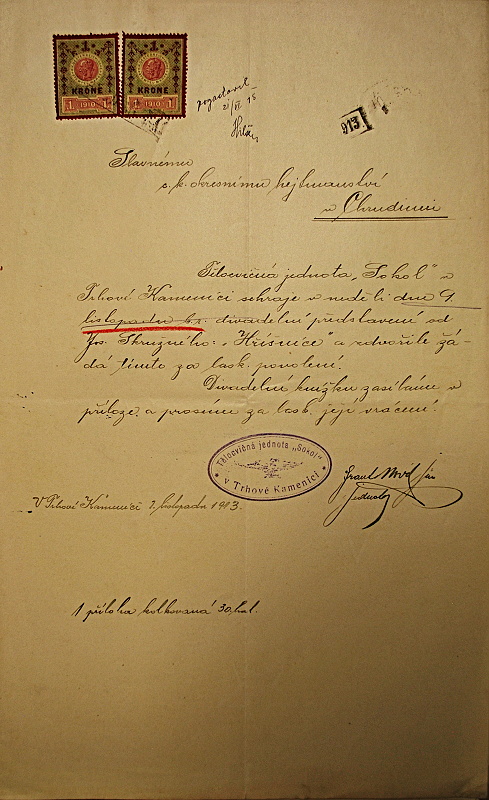 1 1
KRONE KRONE
1 1910 1 1 1910 1
913
Slavnému
c. k. okresnímu hejtmanství
v Chrudimi
Tělocvičná jednota „Sokol" v
Trhové Kamenici sehraje v neděli dne 9.
listopadu t.r. divadelní představení od
Jos. Skružného: „Hříšnice" a zdvořile žá-
dá tímto za lask. povolení.
Divadelní knížku zasíláme v
příloze a prosíme za lask. její vrácení.
Tělocvičná jednota „Sokol"
v Trhové Kamenici
V Trhové Kamenici 7. listopadu 1913.
jednatel
1 příloha kolkovaná 30 hal.